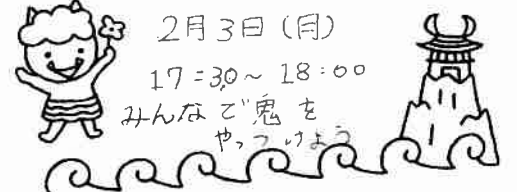 2月3日(月)
17:30~18:00
みんなで鬼を
やっつけよう